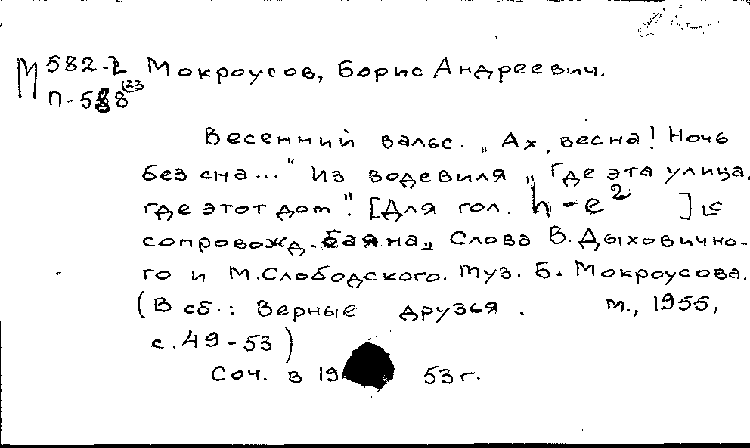 М 582-2 Мокроусов, Борис Андреевич.
П-588
Весенний вальс. "Ах, весна! Ночь
без сна..." Из водевиля "Где эта улица,
где этот дом". [Для гол. h-e² ] с
сопровожд. баяна. Слова В. Дыховично-
го и М. Слободского. Муз. Б. Мокроусова.
(В сб.: Верные друзья. М., 1955,
с. 49-53)
Соч. в 19 53 г.